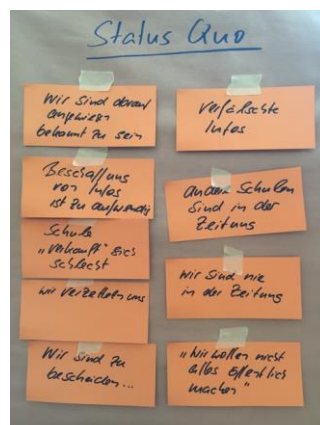 Status Quo
Wir sind darauf
angewiesen
bekannt zu sein
Beschaffung
von Infos
ist zu aufwendig
Schule
"verkauft" sich
schlecht
wir verzetteln uns
Wir sind zu
bescheiden...
Verfälschte
Infos
andere Schulen
sind in der
Zeitung
Wir sind nie
in der Zeitung
"Wir wollen nicht
alles öffentlich
machen"